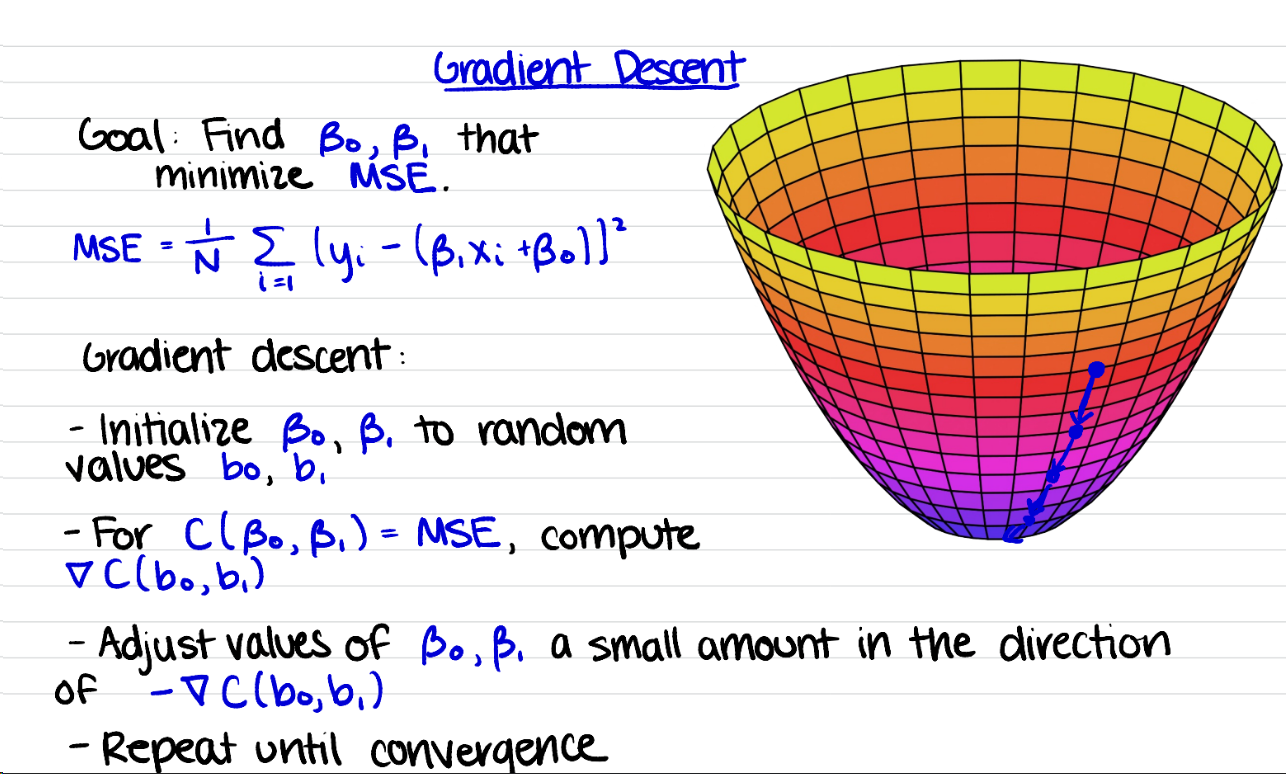 Gradient Descent
Goal: Find β₀, β₁ that
minimize MSE.
MSE = 1/N Σ i=1 (yi - (β₁xi + β₀))²
Gradient descent:
- Initialize β₀, β₁ to random
values b₀, b₁
- For C(β₀, β₁) = MSE, compute
∇C(b₀, b₁)
- Adjust values of β₀, β₁ a small amount in the direction
of -∇C(b₀, b₁)
- Repeat until convergence